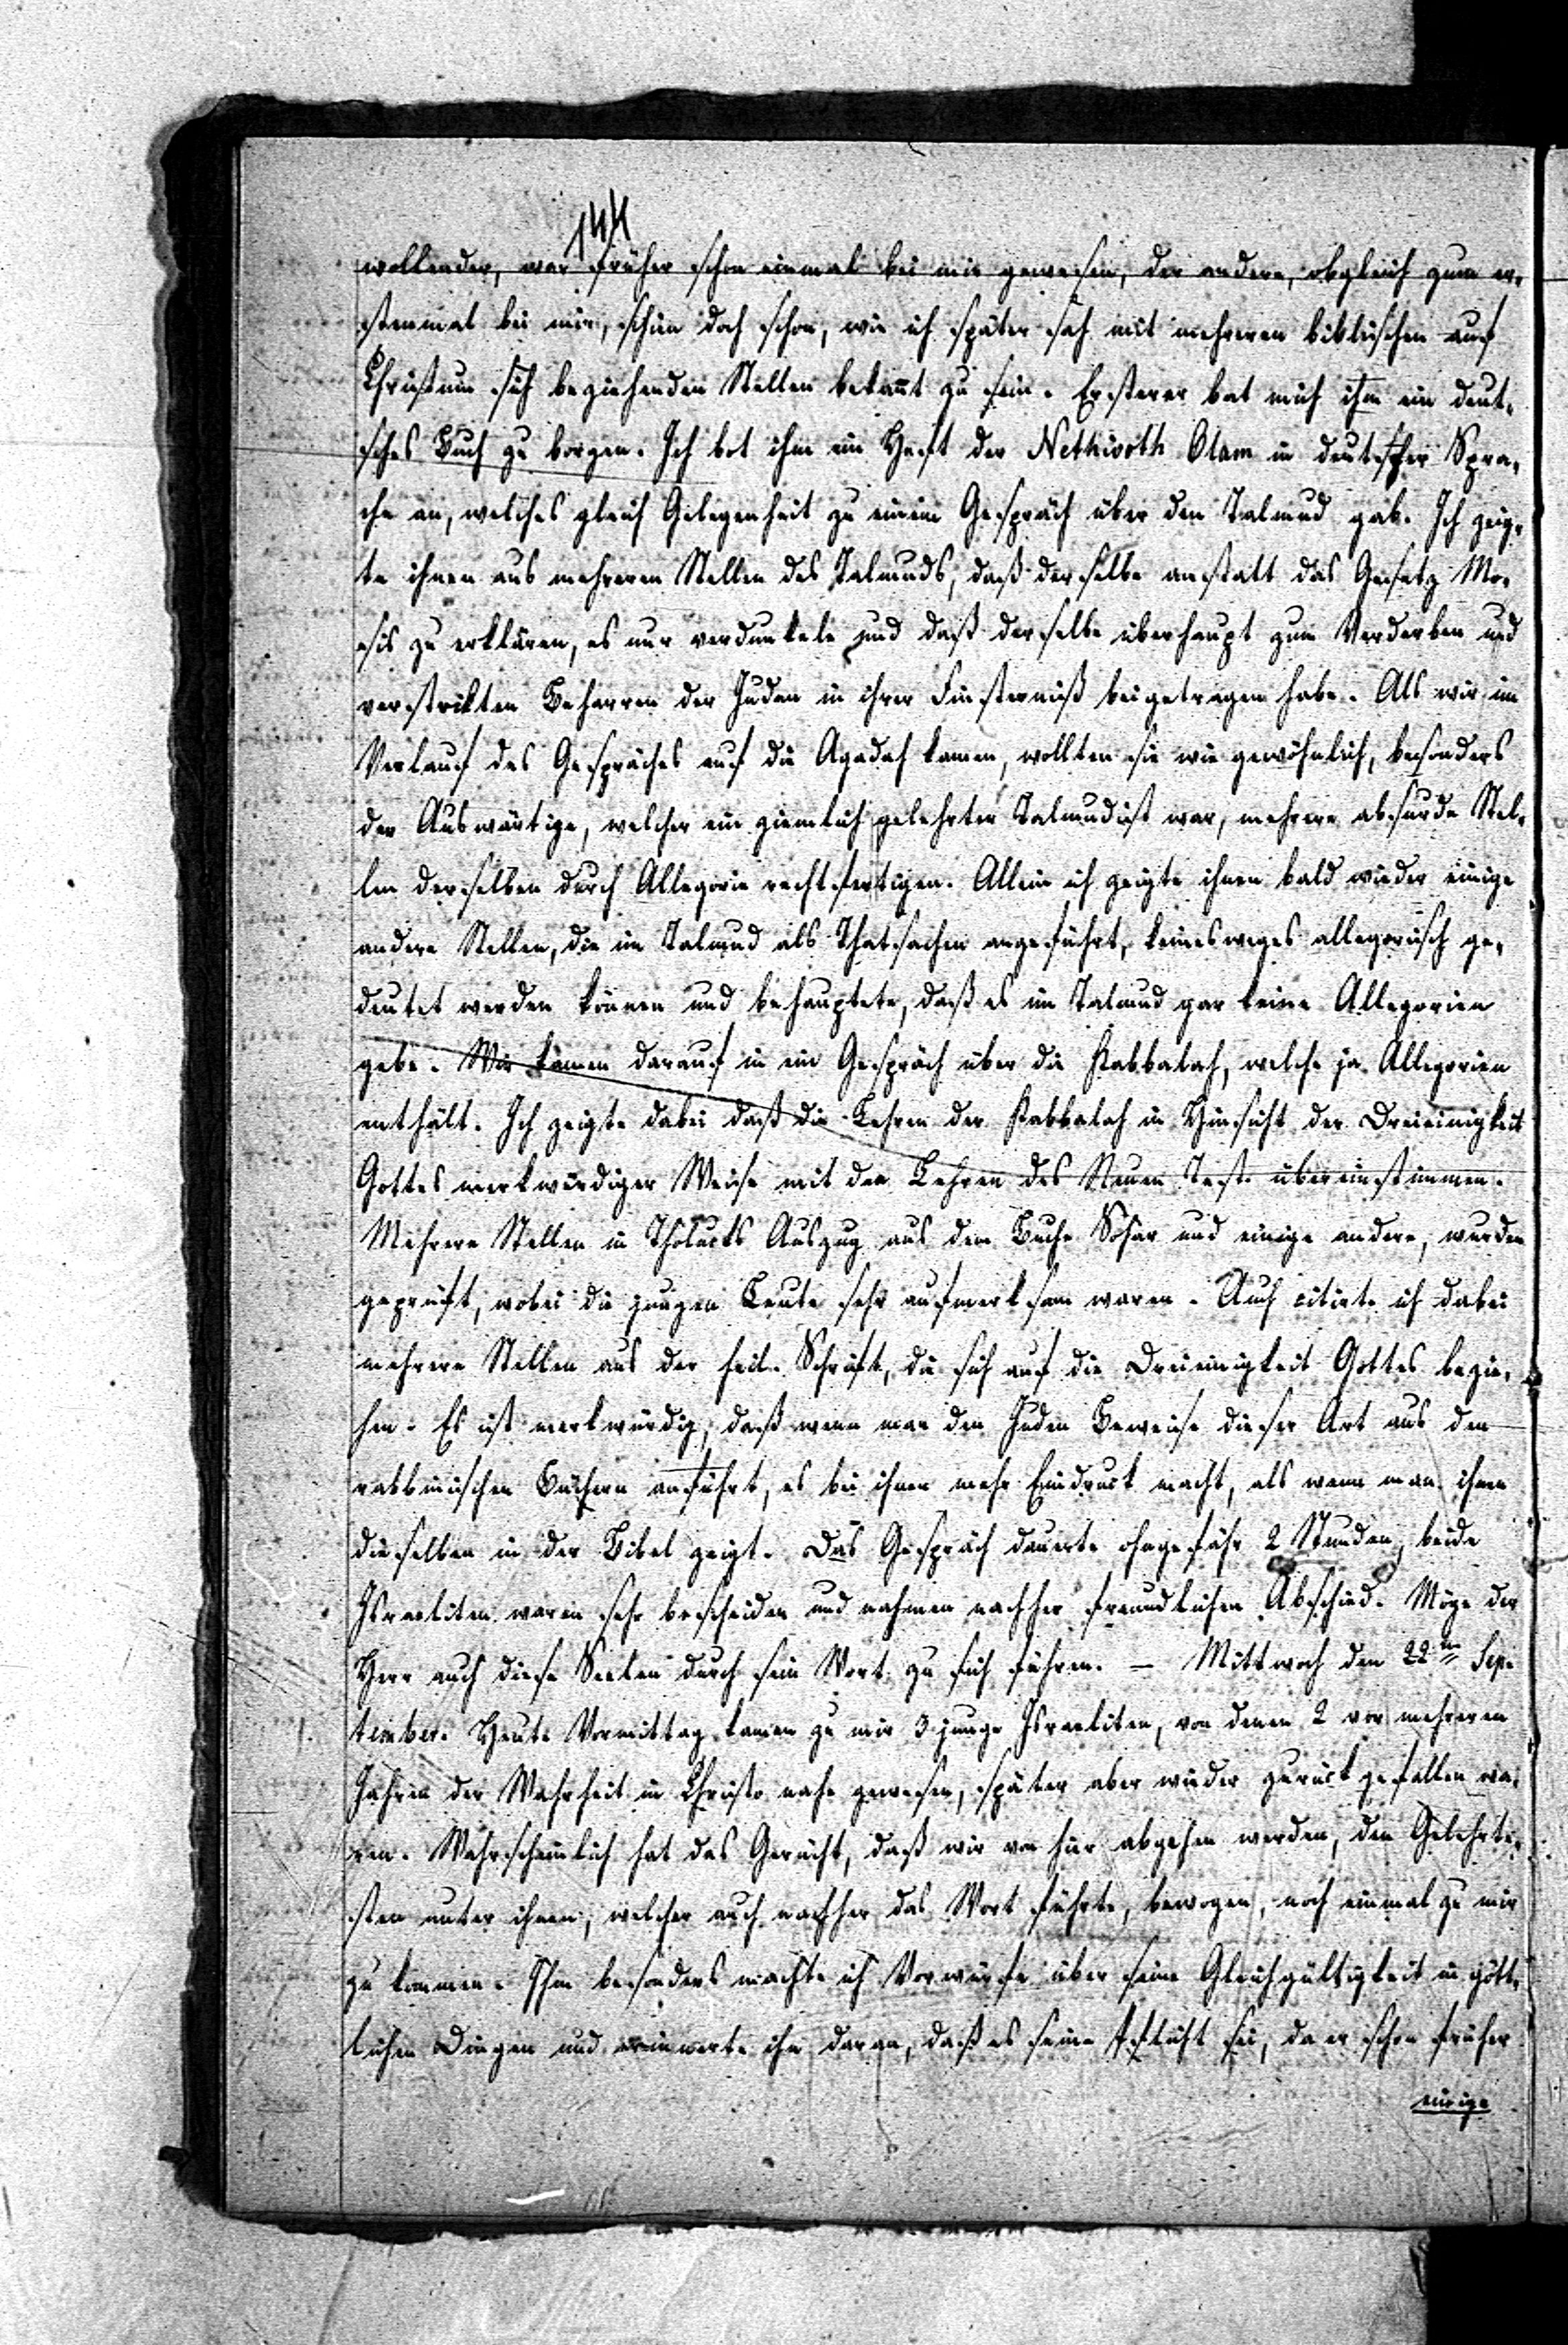 144
wollender, war früher schon einmal bei mir gewesen, der andere, obgleich zum er-
stenmal bei mir, schien doch schon, wie ich später sah mit mehreren biblischen auf
Christum sich beziehenden Stellen bekannt zu sein. Ersterer bat mich ihm ein deut-
sches Buch zu borgen. Ich bot ihm ein Heft der Nethivoth Olam in deutscher Spra-
che an, welches gleich Gelegenheit zu einem Gespräch über den Talmud gab. Ich zeig-
te ihnen aus mehreren Stellen des Talmuds, daß derselbe anstatt das Gesetz Mo-
sis zu erklären, es nur verdunkele und daß derselbe überhaupt zum Verderben und
verstrikten Beharren der Juden in ihrer Finsterniß beigetragen habe. Als wir im
Verlauf des Gespräches auf die Agadah kamen, wollten sie wie gewöhnlich, besonders
der Auswärtige, welcher ein ziemlich gelehrter Talmudist war, mehrere absurde Stel-
len derselben durch Allegorie rechtfertigen. Allein ich zeigte ihnen bald wieder einige
andere Stellen, die im Talmud als Thatsachen angeführt, keinesweges allegorisch ge-
deutet werden können und behauptete, daß es im Talmud gar keine Allegorien
gebe. Wir kamen darauf in ein Gespräch über die Kabbalah, welche ja Allegorien
enthält. Ich zeigte dabei daß die Lehren der Kabbalah in Hinsicht der Dreieinigkeit
Gottes merkwürdiger Weise mit den Lehren des Neuen Test. übereinstimmen.
Mehrere Stellen in Tholucks Auszug aus dem Buche Sohar und einige andere, wurden
geprüft, wobei die jungen Leute sehr aufmerksam waren. Auch citirte ich dabei
mehrere Stellen aus der heil. Schrift, die sich auf die Dreieinigkeit Gottes bezie-
hen. Es ist merkwürdig, daß wenn man den Juden Beweise dieser Art aus den
rabbinischen Büchern anführt, es bei ihnen mehr Eindruck macht, als wenn man ihnen
dieselben in der Bibel zeigt. Das Gespräch dauerte ohngefähr 2 Stunden, beide
Israeliten waren sehr bescheiden und nahmen nachher freundlichen Abschied. Möge der
Herr auch diese Seelen durch sein Wort zu sich führen. – Mittwoch den 22ten Sep-
tember. Heute Vormittag kamen zu mir 3 junge Israeliten, von denen 2 vor mehreren
Jahren der Wahrheit in Christo nahe gewesen, später aber wieder zurückgefallen wa-
ren. Wahrscheinlich hat das Gerücht, daß wir von hier abgehen werden, den Gelehrte-
sten unter ihnen, welcher auch nachher das Wort führte, bewogen, noch einmal zu mir
zu kommen. Ihm besonders machte ich Vorwürfe über seine Gleichgültigkeit in gött-
lichen Dingen und erinnerte ihn daran, daß es seine Pflicht sei, da er schon früher
einige